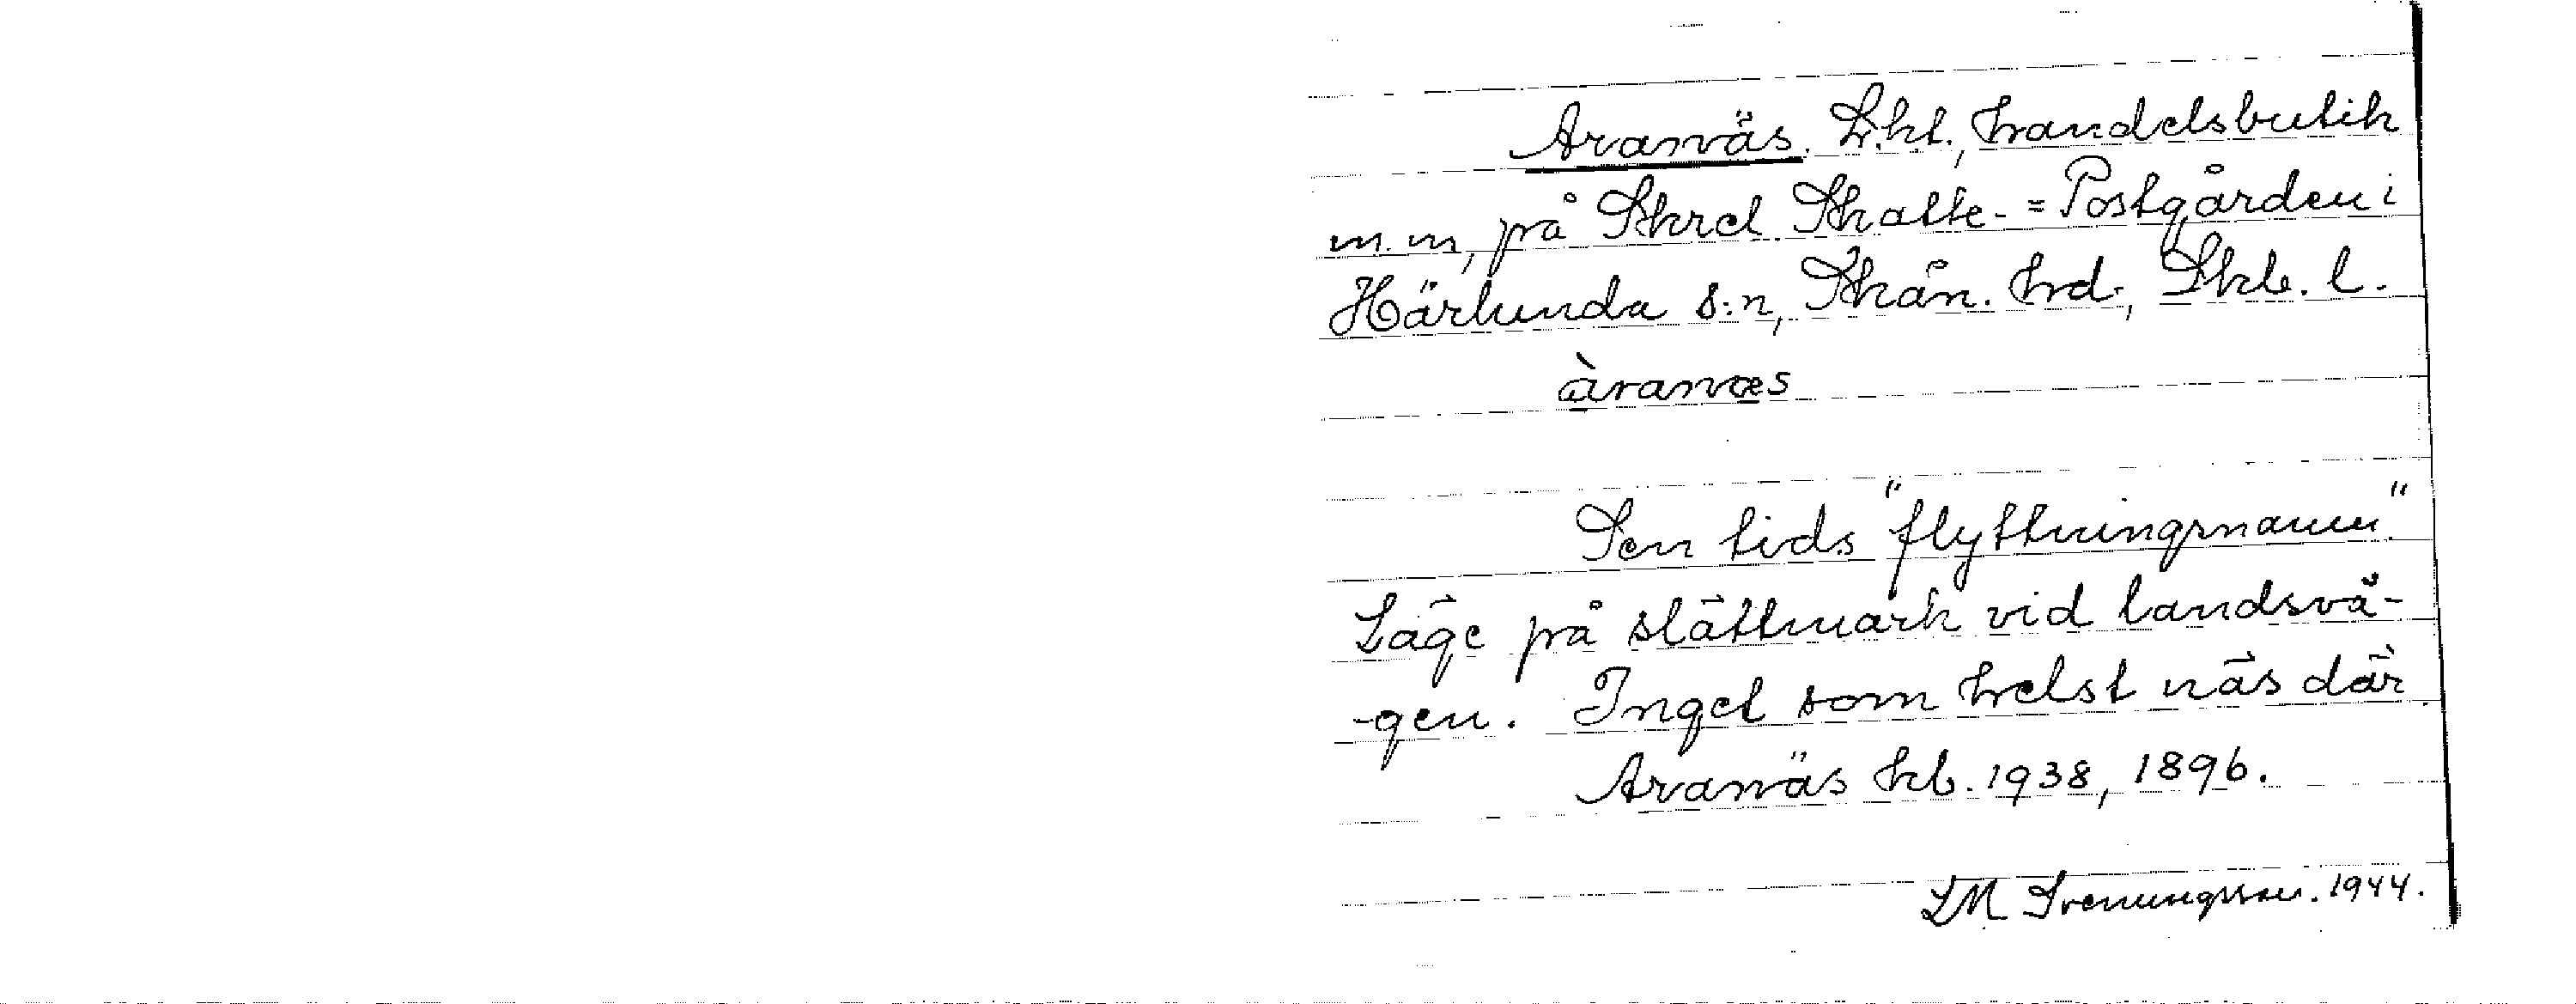 Aranäs. L.ht., handelsbutik
m.m, på Skrel. Skatte- = Postgården i
Härlunda s:n, Skån. hrd., Skb. l.
àranæs
Sen tids "flyttningsnamn".
Läge på slättmark vid landsvä-
-gen. Inget som helst näs där
Aranäs kb. 1938, 1896.
LM Svenungsson. 1944.